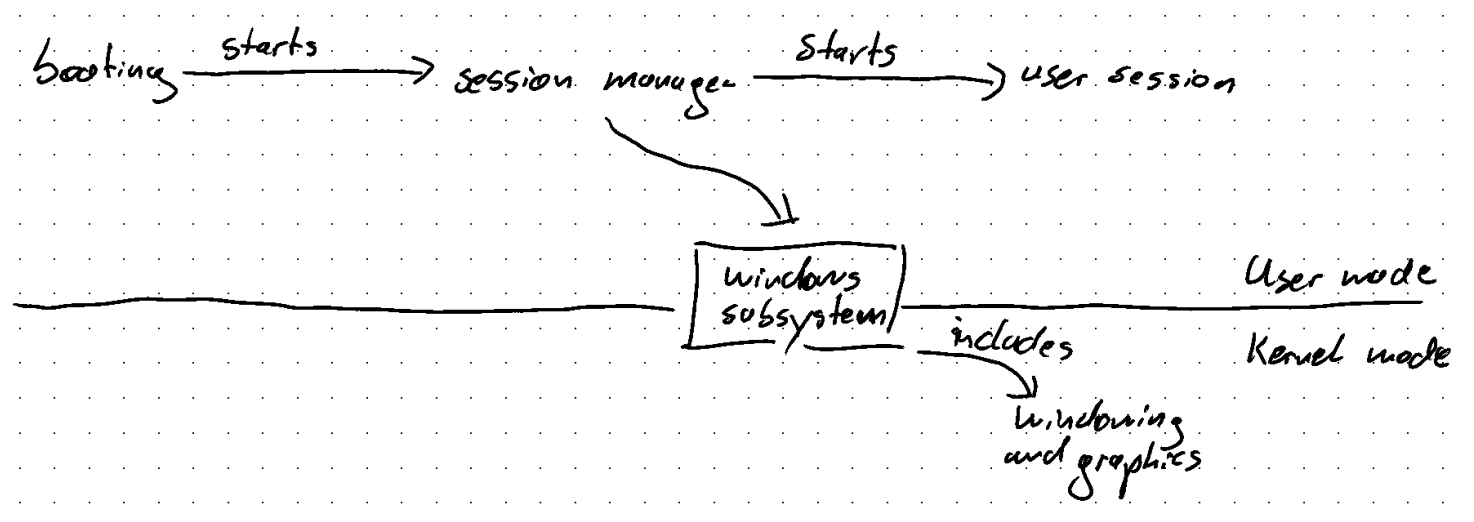 booting starts session manager starts user session
windows
subsystem
User mode
includes
Kernel mode
windowing
and graphics